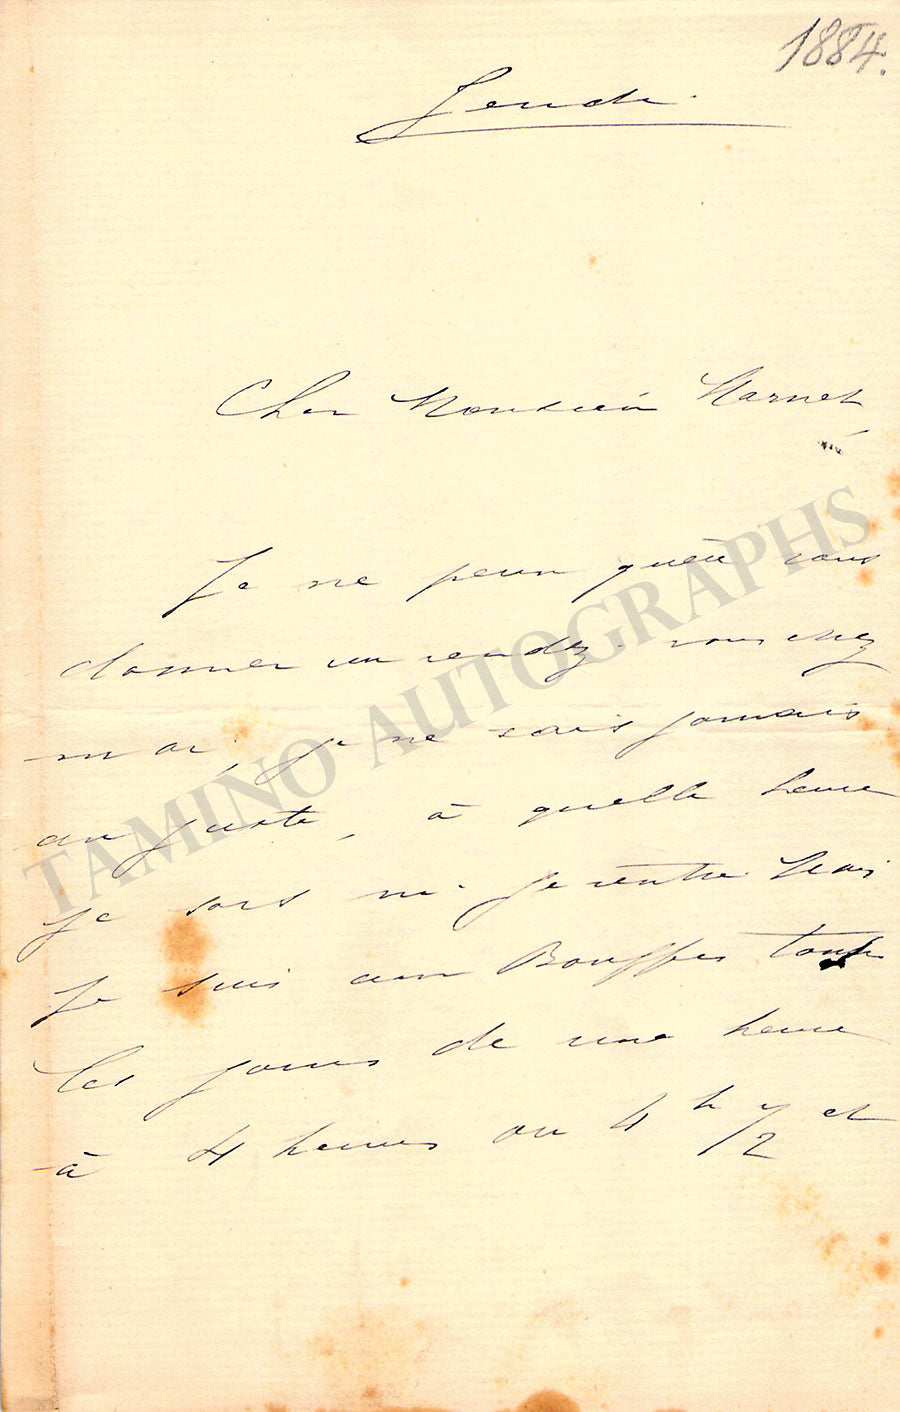 1884.
Jeudi.
Cher Monsieur Marnet,
Je ne peux guère vous
donner un rendez-vous chez
moi, je ne sais jamais
au juste, à quelle heure
je sors ni je rentre Mais
je suis aux Bouffes tous
les jours de une heure
à 4 heures ou 4 h 1/2 et
TAMINO AUTOGRAPHS